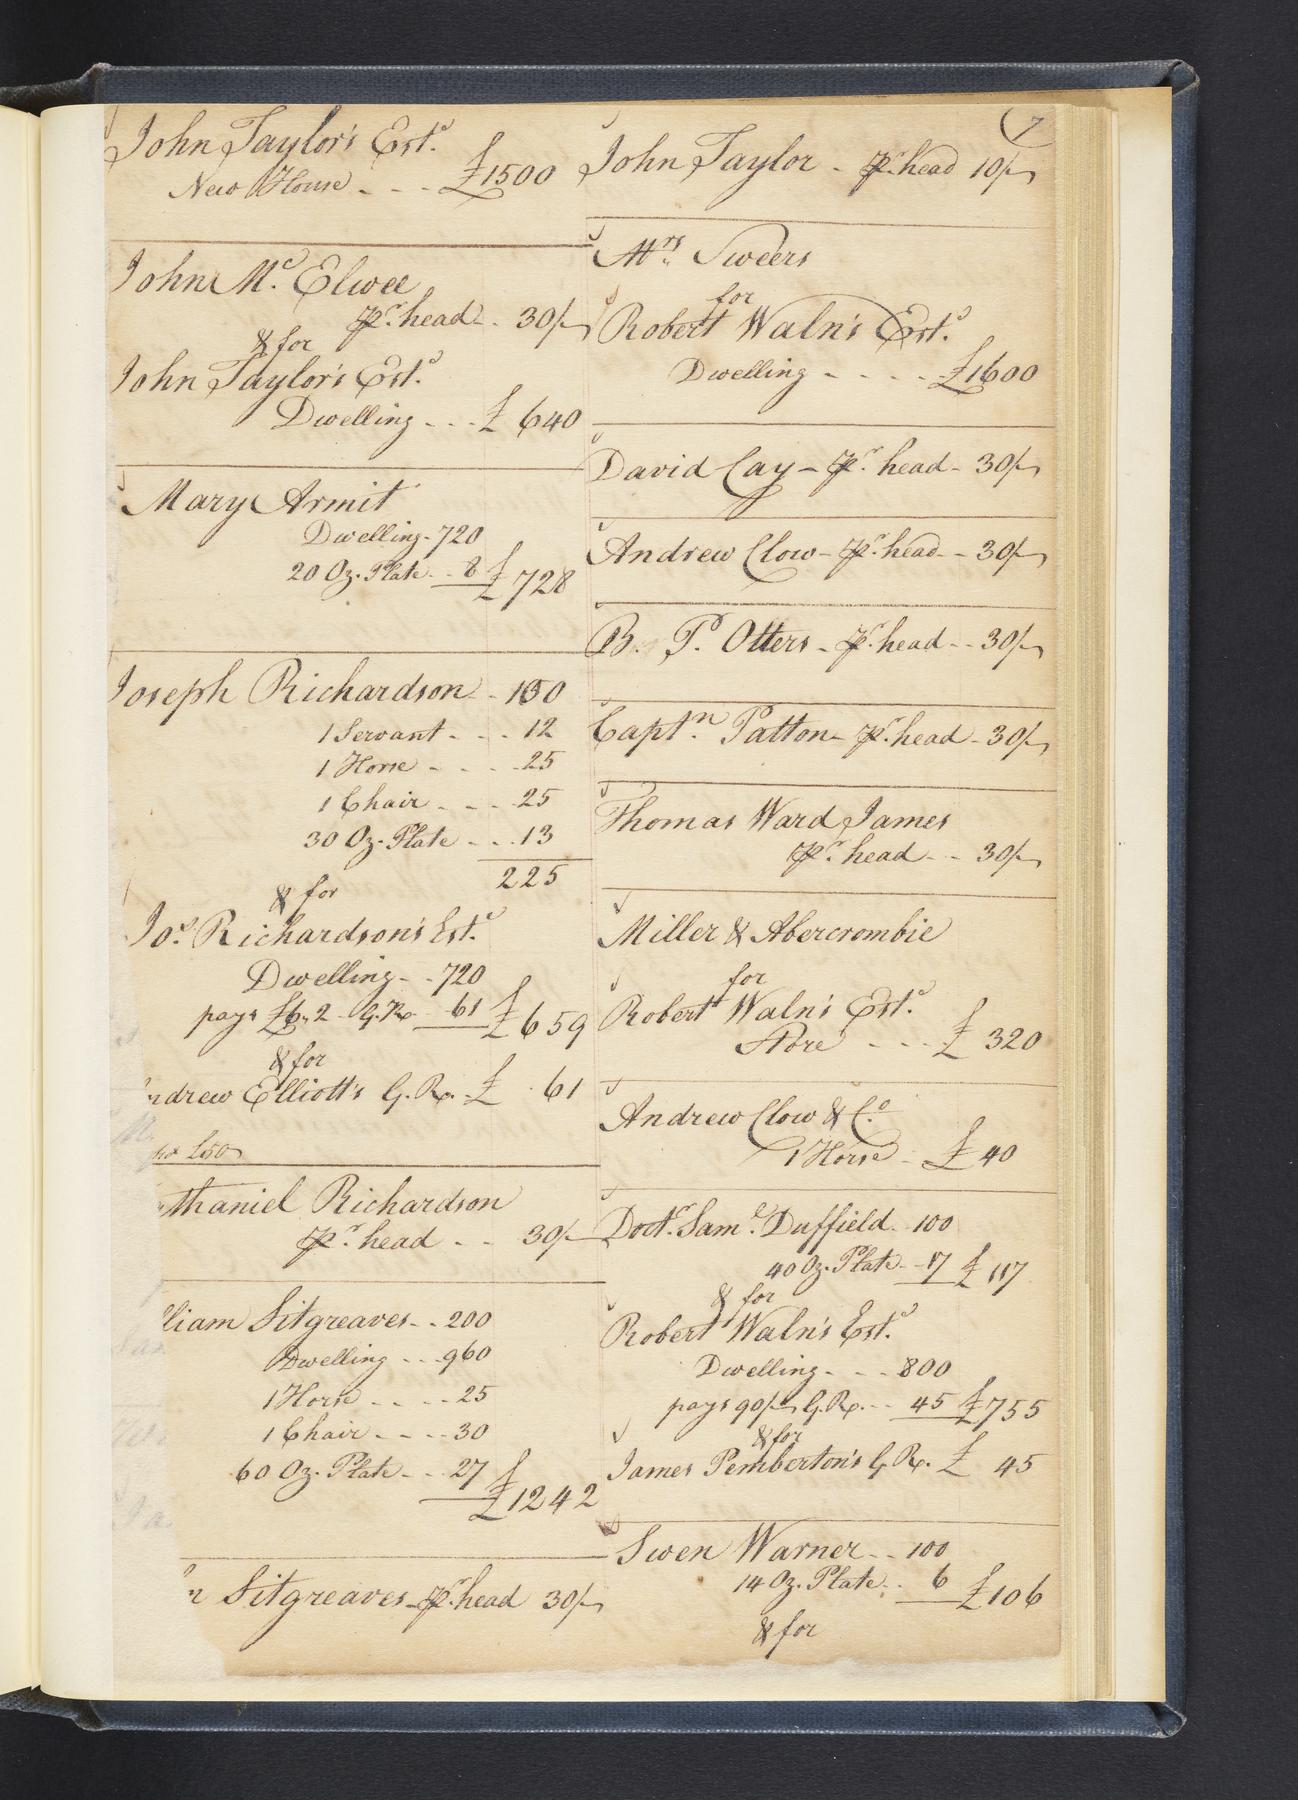 John Taylor's Est.ᵈ
New House - - - £1500
John Mᶜ. Elwee
pʳ. head - . 30/-
& for
John Taylor's Est.ᵈ
Dwelling - - - £ 640
Mary Armit
Dwelling - 720
20 Oz. Plate - - 8 £ 728
Joseph Richardson - - 150
1 Servant - - - 12
1 Horse - - - - 25
1 Chair - - - 25
30 Oz. Plate - - . 13
225
& for
Joˢ. Richardson's Est.ᵈ
Dwelling - - 720
pays £6. 2 - G. Rᵗ - 61 £ 659
& for
ndrew Elliott's G. Rᵗ. - £ 61
£50
thaniel Richardson
pʳ. head - - 30/-
lliam Sitgreaves - . 200
Dwelling - - - 960
1 Horse - - - - 25
1 Chair - - - - 30
60 Oz. Plate - - . 27
£1242
n Sitgreaves - pʳ. head 30/-
7
John Taylor - pʳ. head 10/-
Mʳˢ. Sweers
for
Robert Waln's Est.ᵈ
Dwelling - - - - - £1600
David Cay - pʳ. head - 30/-
Andrew Clow - pʳ. head - - 30/-
B. P. Otters - pʳ. head - - 30/-
Capt.ⁿ Patton - pʳ. head - 30/-
Thomas Ward James
pʳ. head - - 30/-
Miller & Abercrombie
for
Robert Waln's Est.ᵈ
Store - - - £ 320
Andrew Clow & Cº
1 Horse - £ 40
Doctʳ. Sam.ˡ Duffield - 100
40 Oz. Plate - - 17 £ 117
& for
Robert Waln's Est.ᵈ
Dwelling - - - 800
pays 90/- G. Rᵗ. - - 45 £755
& for
James Pemberton's G. Rᵗ. £ 45
Swen Warner - - 100
14 Oz. Plate - . 6 £106
& for